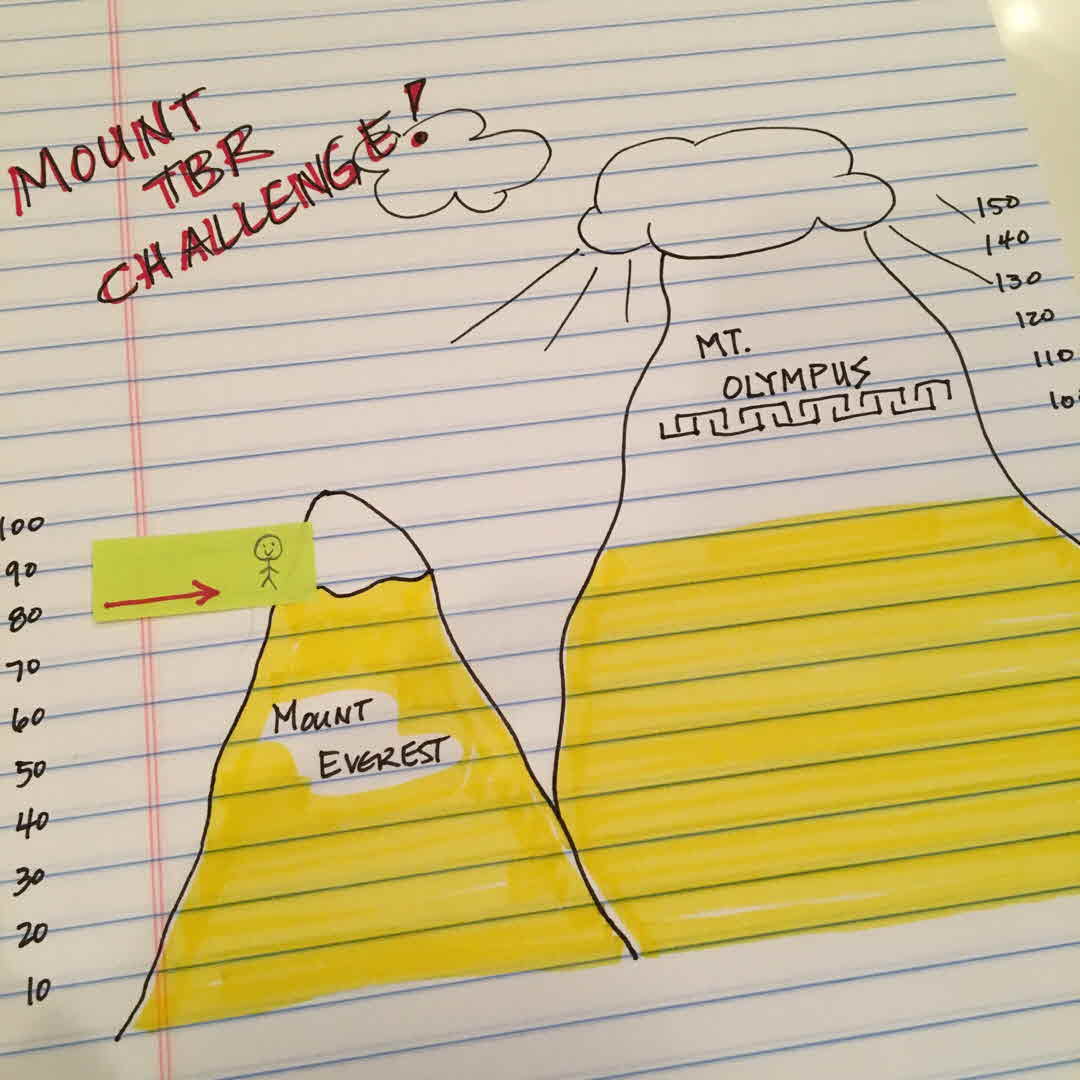 MOUNT
TBR
CHALLENGE!
150
140
130
120
110
100
MT.
OLYMPUS
100
90
80
70
60
50
40
30
20
10
MOUNT
EVEREST